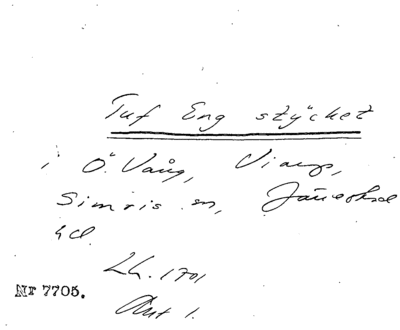 Tuf Eng stycket
i Ö. Vång, Viarps,
Simris sn, Järrestad
hd.
Lh. 1701
Akt 1.
Nr 7705.